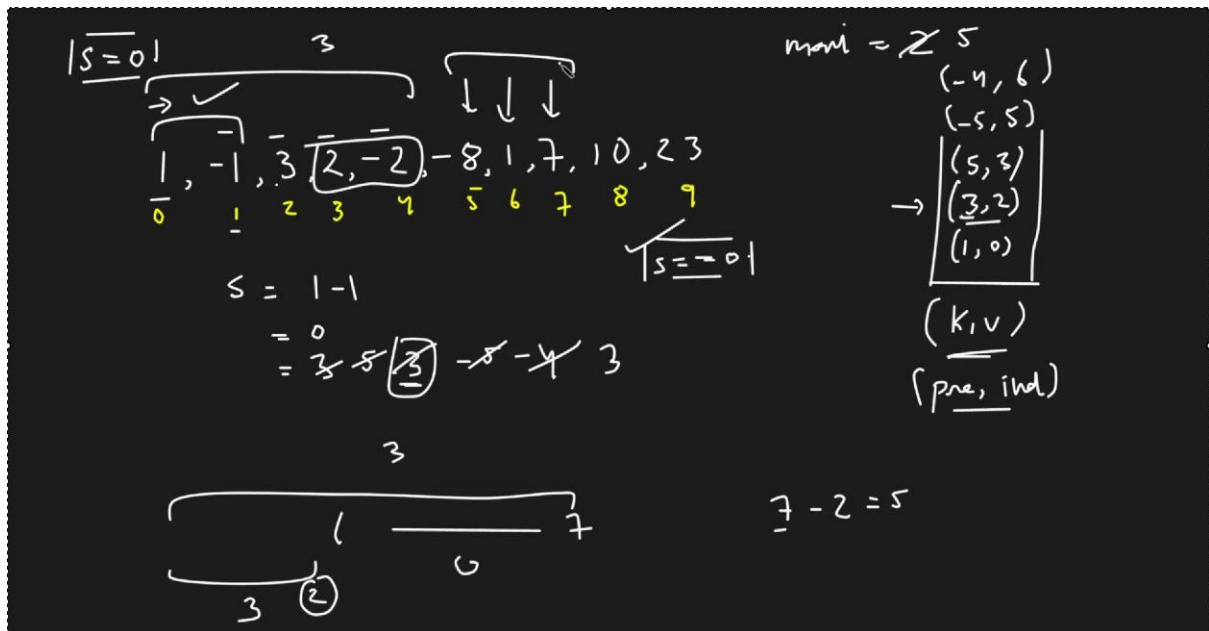 |S = 0|
3
maxi = 2 5
(-4, 6)
(-5, 5)
→ ✓
1, -1, 3, 2, -2, -8, 1, 7, 10, 23
(5, 3)
0 1 2 3 4 5 6 7 8 9
→ (3, 2)
(1, 0)
|s == 0|
S = 1-1
= 0
= 3 5 3 -5 -4 3
(K, v)
(pre, ind)
3
( 7
0
3 2
7 - 2 = 5